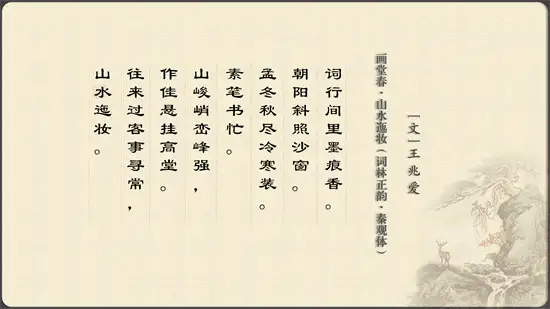 画堂春·山水迤妆(词林正韵·秦观体)
[文]王兆爱
词行间里墨痕香。
朝阳斜照沙窗。
孟冬秋尽冷寒装。
素笔书忙。
山峻峭峦峰强，
作佳悬挂高堂。
往来过客事寻常，
山水迤妆。